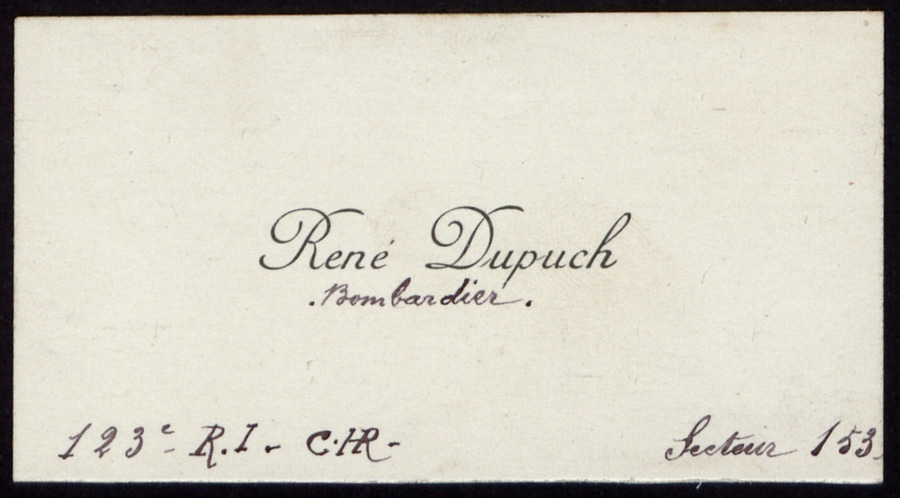 René Dupuch
. Bombardier .
123e - R.I - C.HR - Secteur 153